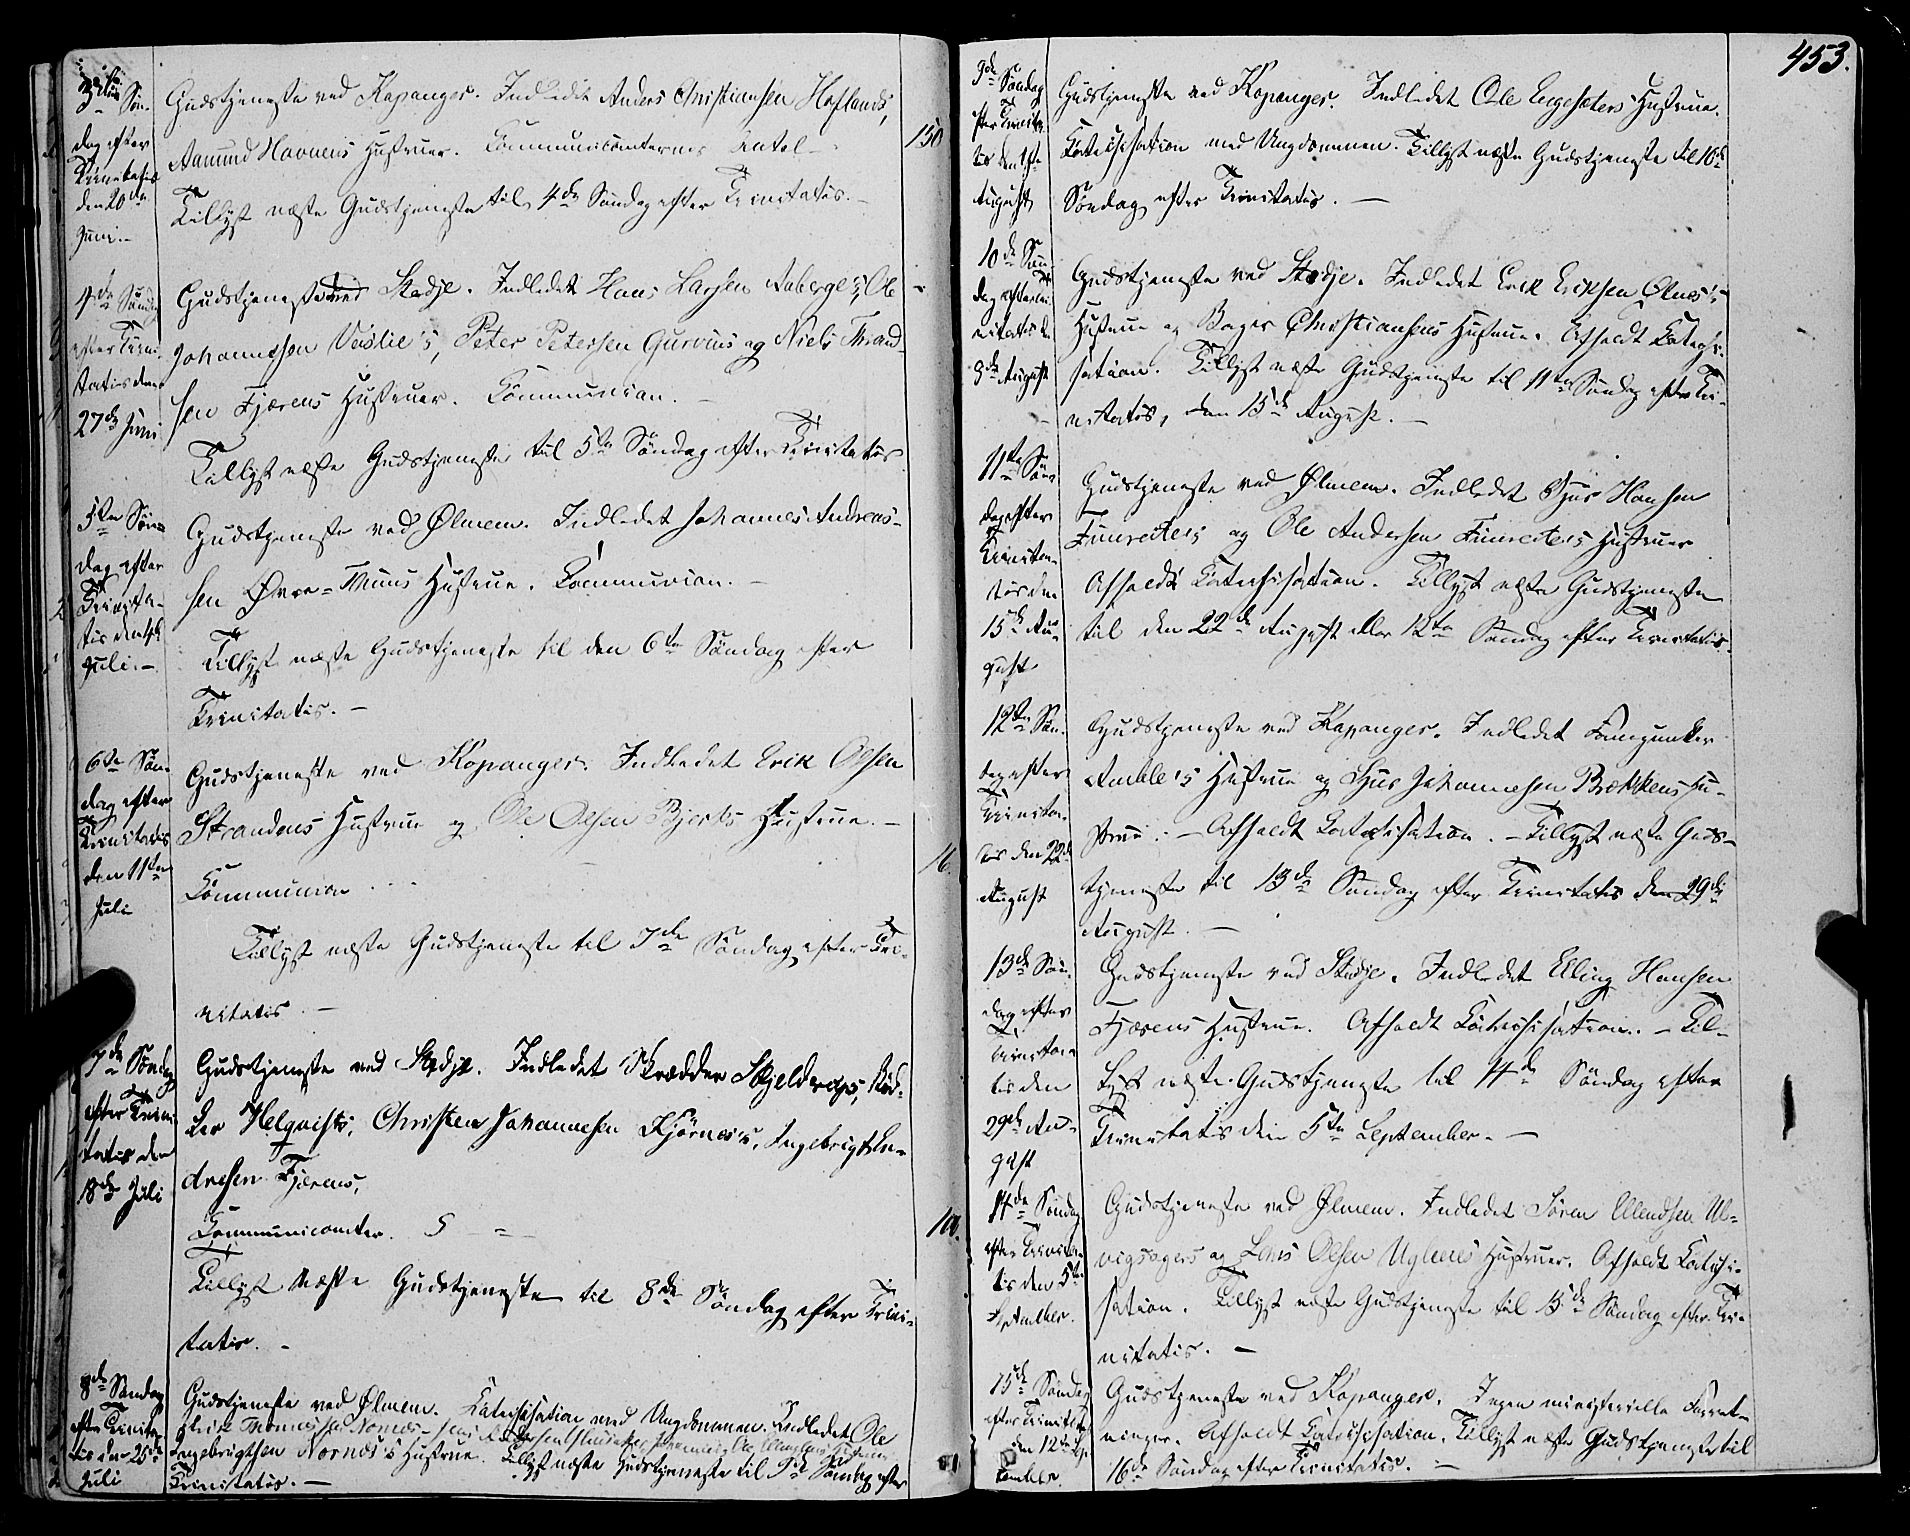 3die Søn-
dag efter
Trinitatis
den 20de
Juni.-
Gudstjeneste ved Kopanger. Indledt Anders Christiansen Hoflands,
Aamund Havnens Hustruer. Communicanternes Antal - 150
Tillyst næste Gudstjeneste til 4de Søndag efter Trinitatis.-
4de Søndag
efter Trini-
tatis den
27de Juni
Gudstjeneste ved Stedje. Indledet Hans Larsen Aaberge's, Ole
Johannesen Veslie's, Peter Petersen Gurvins og Niels Thrond-
sen Fjærens Hustruer. Communion. -
Tillyst næste Gudstjeneste til 5te Søndag efter Trinitatis
5te Søn-
dag efter
Trinita-
tis den 4de
Juli.-
Gudstjeneste ved Ølmem. Indledet Johannes Andreas-
sen Øvre-Muns Hustrue. Communion. -
Tillyst næste Gudstjeneste til den 6te Søndag efter
Trinitatis. -
6te Søn-
dag efter
Trinitatis
den 11te
Juli
Gudstjeneste ved Kopanger. Indledet Erik Olsen
Strandens Hustrue og Ole Olsen Bjerks Hustrue. -
Communion . . . 16
Tillyst næste Gudstjeneste til 7de Søndag efter Tri-
nitatis. -
7de Søndag
efter Trini-
tatis den
18de Juli
Gudstjeneste ved Stedje. Indledet Skrædder Skjeldrups,
der Helqvists, Christen Johannesen Kjørnes's, Ingebrigt En-
dresen Fjærens,
Communicanter. 100.
Tillyst næste Gudstjeneste til 8de Søndag efter Trini-
tatis. -
8de Søndag
efter Trinita-
tis den 25de
Juli
Gudstjeneste ved Ølmem. Catechisation med Ungdommen. Indledet Ole
Erik Thomassen Nornes
Ingebrigtsen Nornes's Hustrue. Tillyst næste Gudstjeneste til 9de Søndag efter
Trinitatis. -
453.
9de Søndag
efter Trinita-
tis den 1ste
August
Gudstjeneste ved Kopanger. Indledet Ole Engesæters Hustrue.
Catechisation med Ungdommen. Tillyst næste Gudstjeneste til 10de
Søndag efter Trinitatis. -
10de Søn-
dag efter Tri-
nitatis den
8de August
Gudstjeneste ved Stedje. Indledet Erik Eriksen Ølnes's
Hustrue og Bager Christiansens Hustrue. Afholdt Catechi-
sation. Tillyst næste Gudstjeneste til 11te Søndag efter Tri-
nitatis, den 15de August. -
11te Søn-
dag efter
Trinita-
tis den
15de Au-
gust
Gudstjeneste ved Ølmem. Indledet Sjur Hansen
Fimreite's og Ole Andersen Fimreite's Hustruer
Afholdt Catechisation. Tillyst næste Gudstjeneste
til den 22de August eller 12te Søndag efter Trinitatis.
12te Søn-
dag efter
Trinita-
tis den 22de
August
Gudstjeneste ved Kopanger. Indledet
Amble's Hustrue og Sjur Johannesen Brækkens Hu-
strue. - Afholdt Catechisation. - Tillyst næste Guds-
tjeneste til 13de Søndag efter Trinitatis den 29de
August. -
13de Søn-
dag efter
Trinita-
tis den
29de Au-
gust
Gudstjeneste ved Stedje. Indledet Elling Hansen
Fjærens Hustrue. Afholdt Catechisation. - Til-
lyst næste Gudstjeneste til 14de Søndag efter
Trinitatis den 5te September. -
14de Søndag
efter Trinita-
tis den 5te
September.
Gudstjeneste ved Ølmem. Indledet Søren Ellendsen Ul-
vigsagers og Lars Olsen Uglenes Hustruer. Afholdt Catechi-
sation. Tillyst næste Gudstjeneste til 15de Søndag efter Tri-
nitatis. -
15de Søndag
efter Trinitatis
den 12te Sep-
tember.
Gudstjeneste ved Kopanger. Ingen ministerielle Forret-
ninger. Afholdt Catechisation. Tillyst næste Gudstjeneste til
16de Søndag efter Trinitatis. -